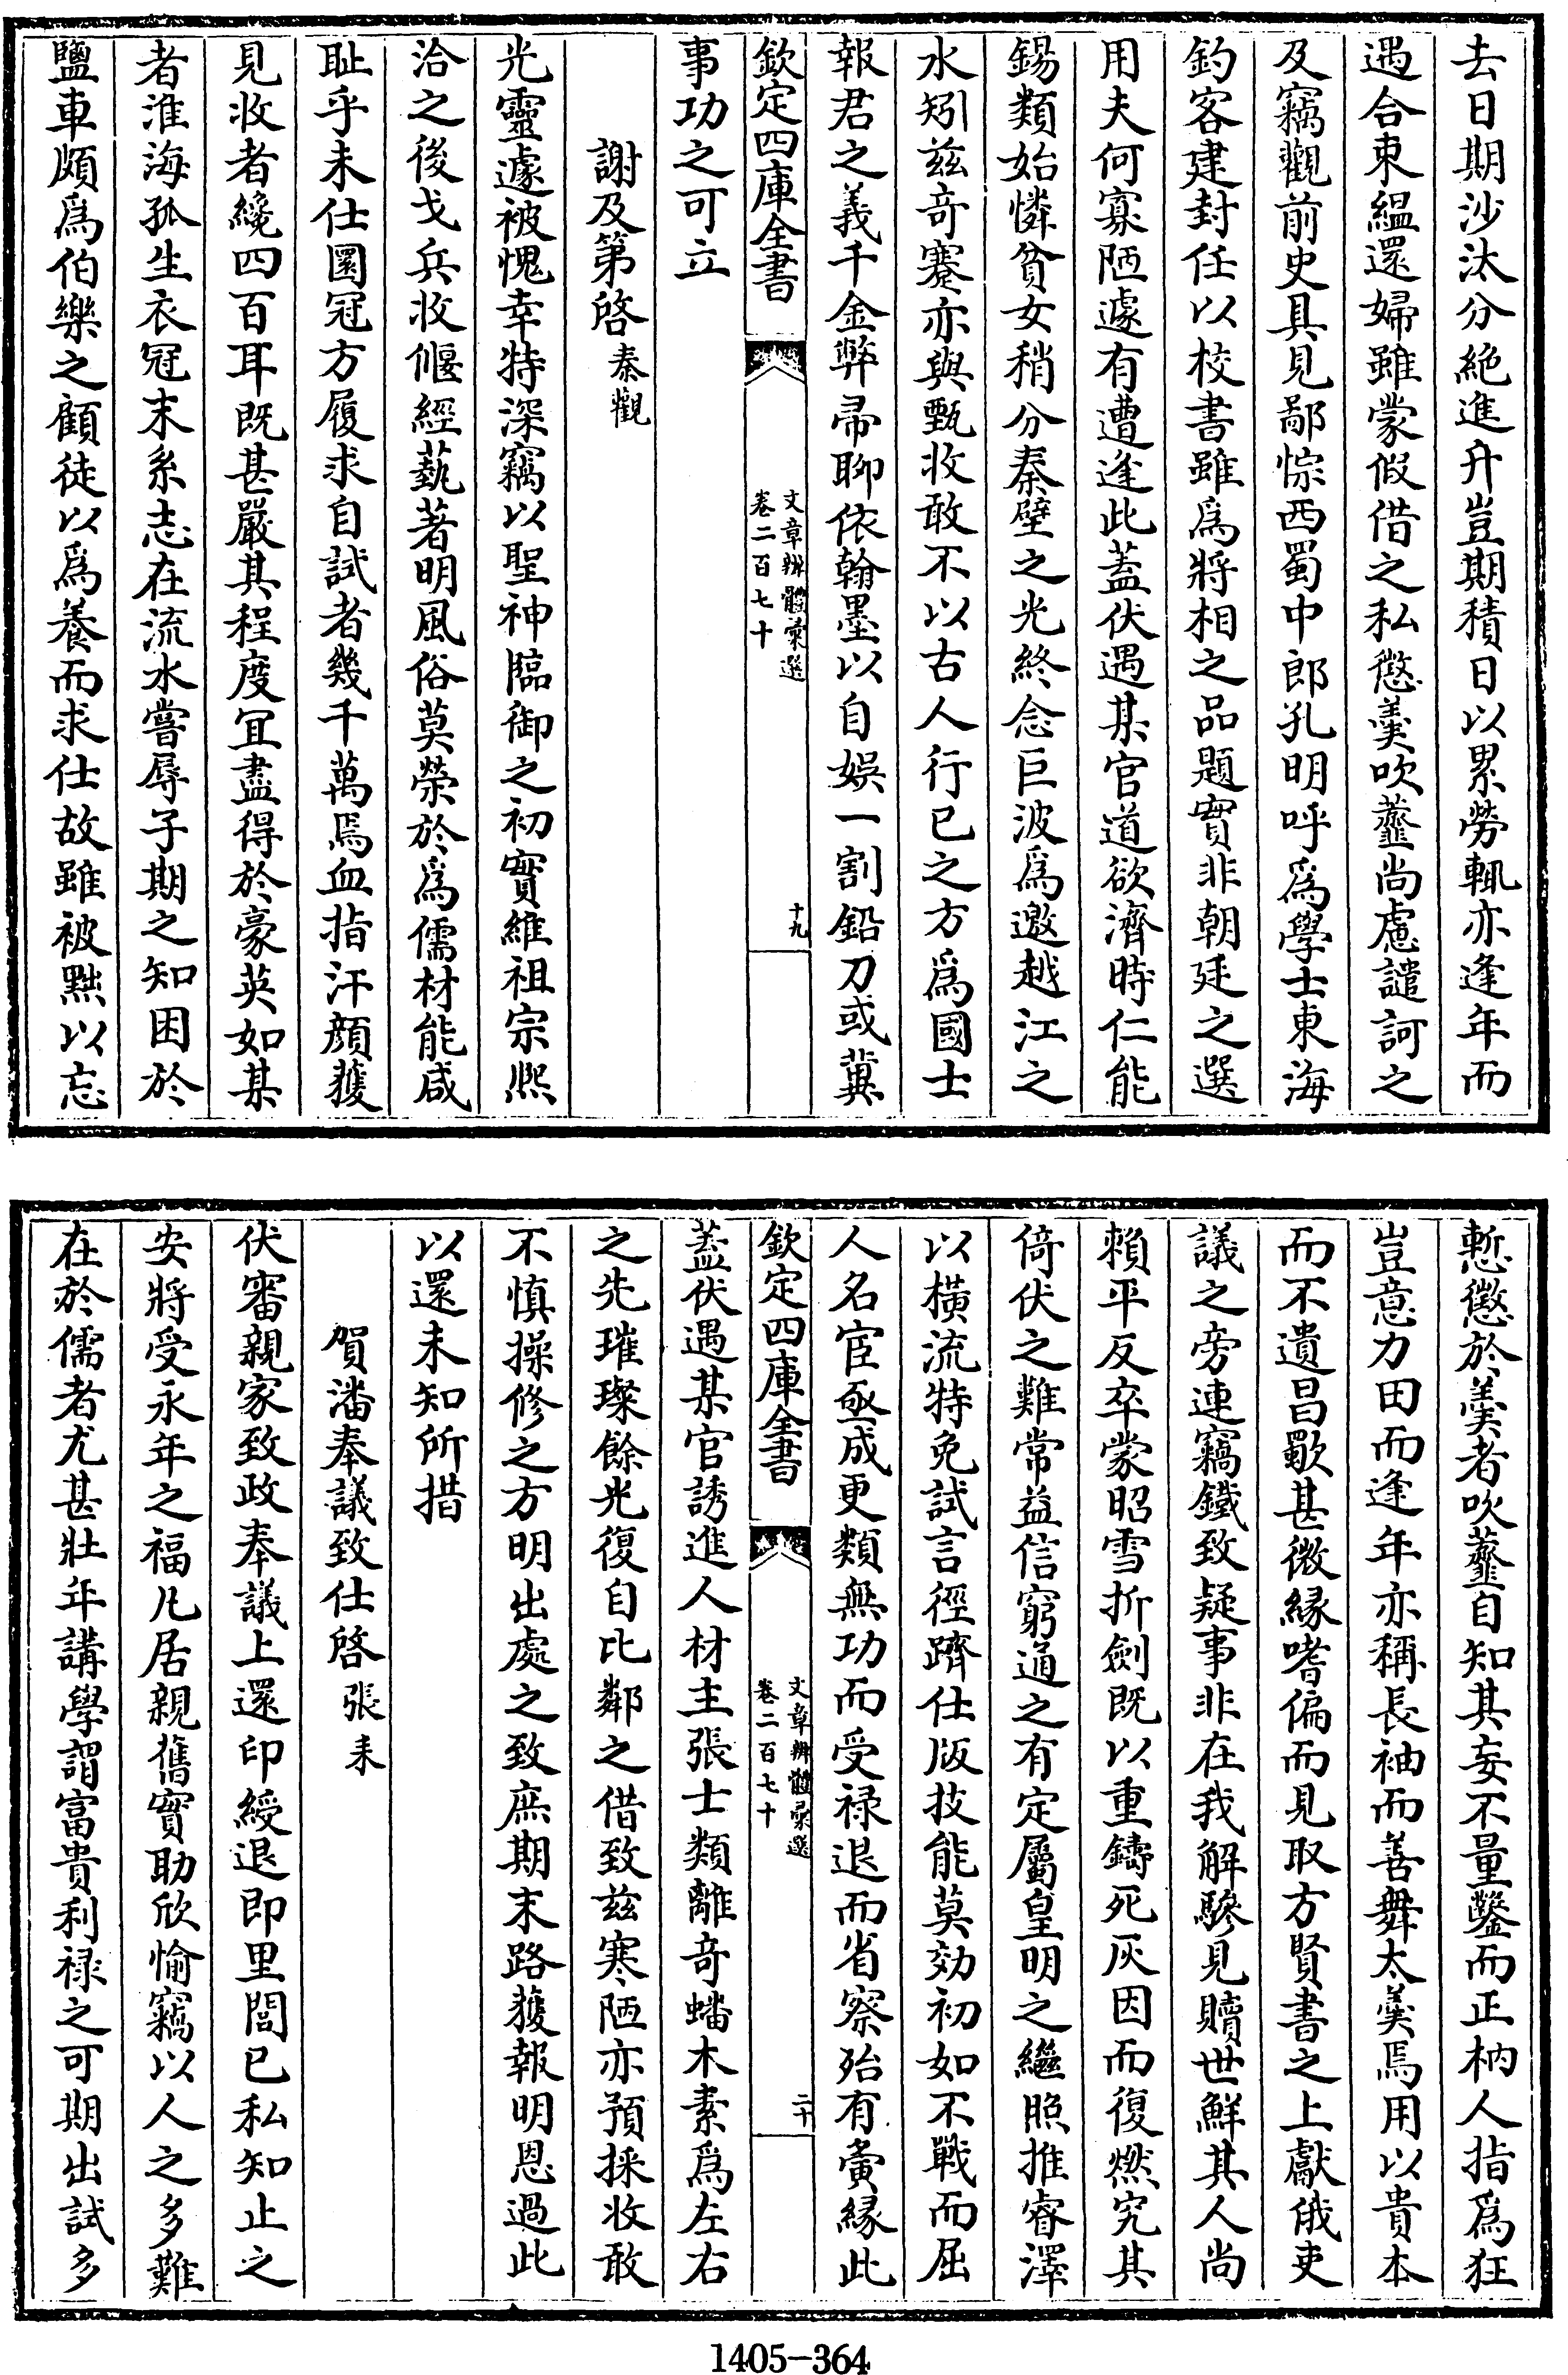 去日期沙汰分絶進升豈期積日以累勞輒亦逢年而
遇合束緼還婦雖蒙假借之私懲羮吹虀尚慮譴訶之
及竊觀前史具見鄙悰西蜀中郎孔明呼爲學士東海
釣客建封任以校書雖爲將相之品題實非朝廷之選
用夫何寡陋遽有遭逢此蓋伏遇某官道欲濟時仁能
錫類始憐貧女稍分秦壁之光終念巨波爲邀越江之
水矧兹竒蹇亦與甄收敢不以古人行已之方爲國士
報君之義千金弊帚聊依翰墨以自娯一割鉛刀或冀
欽定四庫全書
文章辨體彚選
卷二百七十
十九
事功之可立
謝及第啓 秦觀
光靈遽被愧幸特深竊以聖神臨御之初實維祖宗熙
洽之後戈兵收偃經藝著明風俗莫榮於爲儒材能咸
耻乎未仕圜冠方履求自試者幾千萬焉血指汗顔獲
見收者纔四百耳既甚嚴其程度宜盡得於豪英如某
者淮海孤生衣冠末系志在流水嘗辱子期之知困於
鹽車頗爲伯樂之顧徒以爲養而求仕故雖被黜以忘
慙懲於羮者吹虀自知其妄不量鑿而正枘人指爲狂
豈意力田而逢年亦稱長袖而善舞太羮焉用以貴本
而不遺昌歜甚微縁嗜偏而見取方賢書之上獻俄吏
議之旁連竊鐵致疑事非在我解驂見贖世鮮其人尚
賴平反卒蒙昭雪折劍既以重鑄死灰因而復燃究其
倚伏之難常益信窮通之有定屬皇明之繼照推睿澤
以横流特免試言徑躋仕版技能莫効初如不戰而屈
人名宦亟成更類無功而受禄退而省察殆有夤縁此
欽定四庫全書
文章辨體彚選
卷二百七十
二十
蓋伏遇某官誘進人材主張士類離竒蟠木素爲左右
之先璀璨餘光復自比鄰之借致兹寒陋亦預採收敢
不慎操修之方明出處之致庶期末路獲報明恩過此
以還未知所措
賀潘奉議致仕啓 張耒
伏審親家致政奉議上還印綬退即里閭已私知止之
安將受永年之福凡居親舊實助欣愉竊以人之多難
在於儒者尤甚壯年講學謂富貴利禄之可期出試多
1405-364